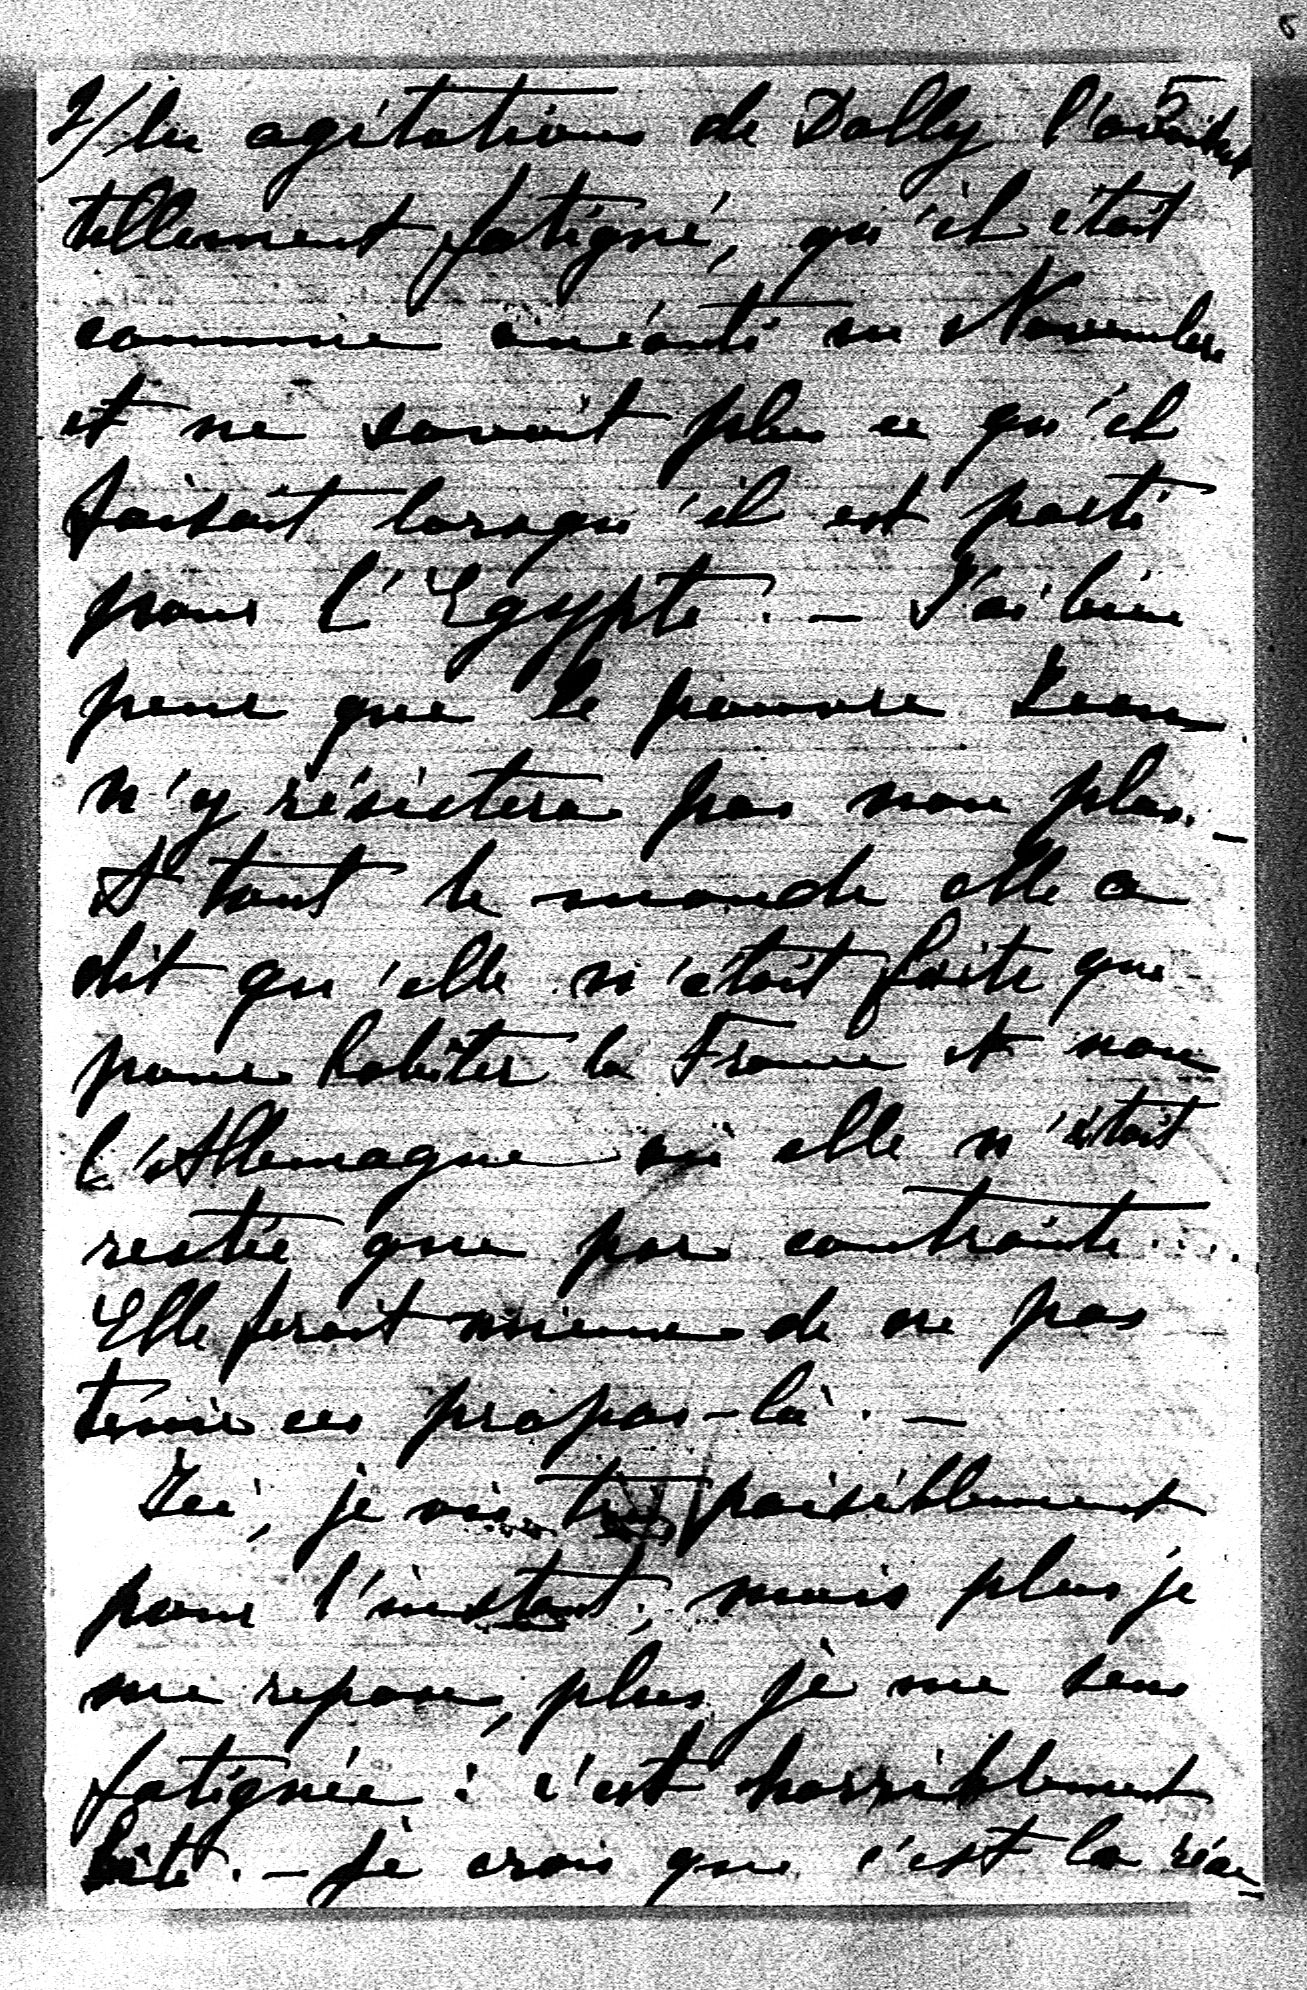 5
5
2/ les agitations de Dolly l'avaient
tellement fatigué, qu'il était
comme anéanti en Novembre
et ne savait plus ce qu'il
faisait lorsqu'il est parti
pour l'Egypte. — J'ai bien
peur que le pauvre Jean
n'y résistera pas non plus. —
A tout le monde elle a
dit qu'elle n'était faite que
pour habiter la France et non
l'Allemagne où elle n'était
restée que par contrainte....
Elle ferait mieux de ne pas
tenir ces propos-là. —
Ici, je vis très paisiblement
pour l'instant, mais plus je
me repose, plus je me sens
fatiguée : c'est horriblement
bête. — Je crois que c'est la réac-